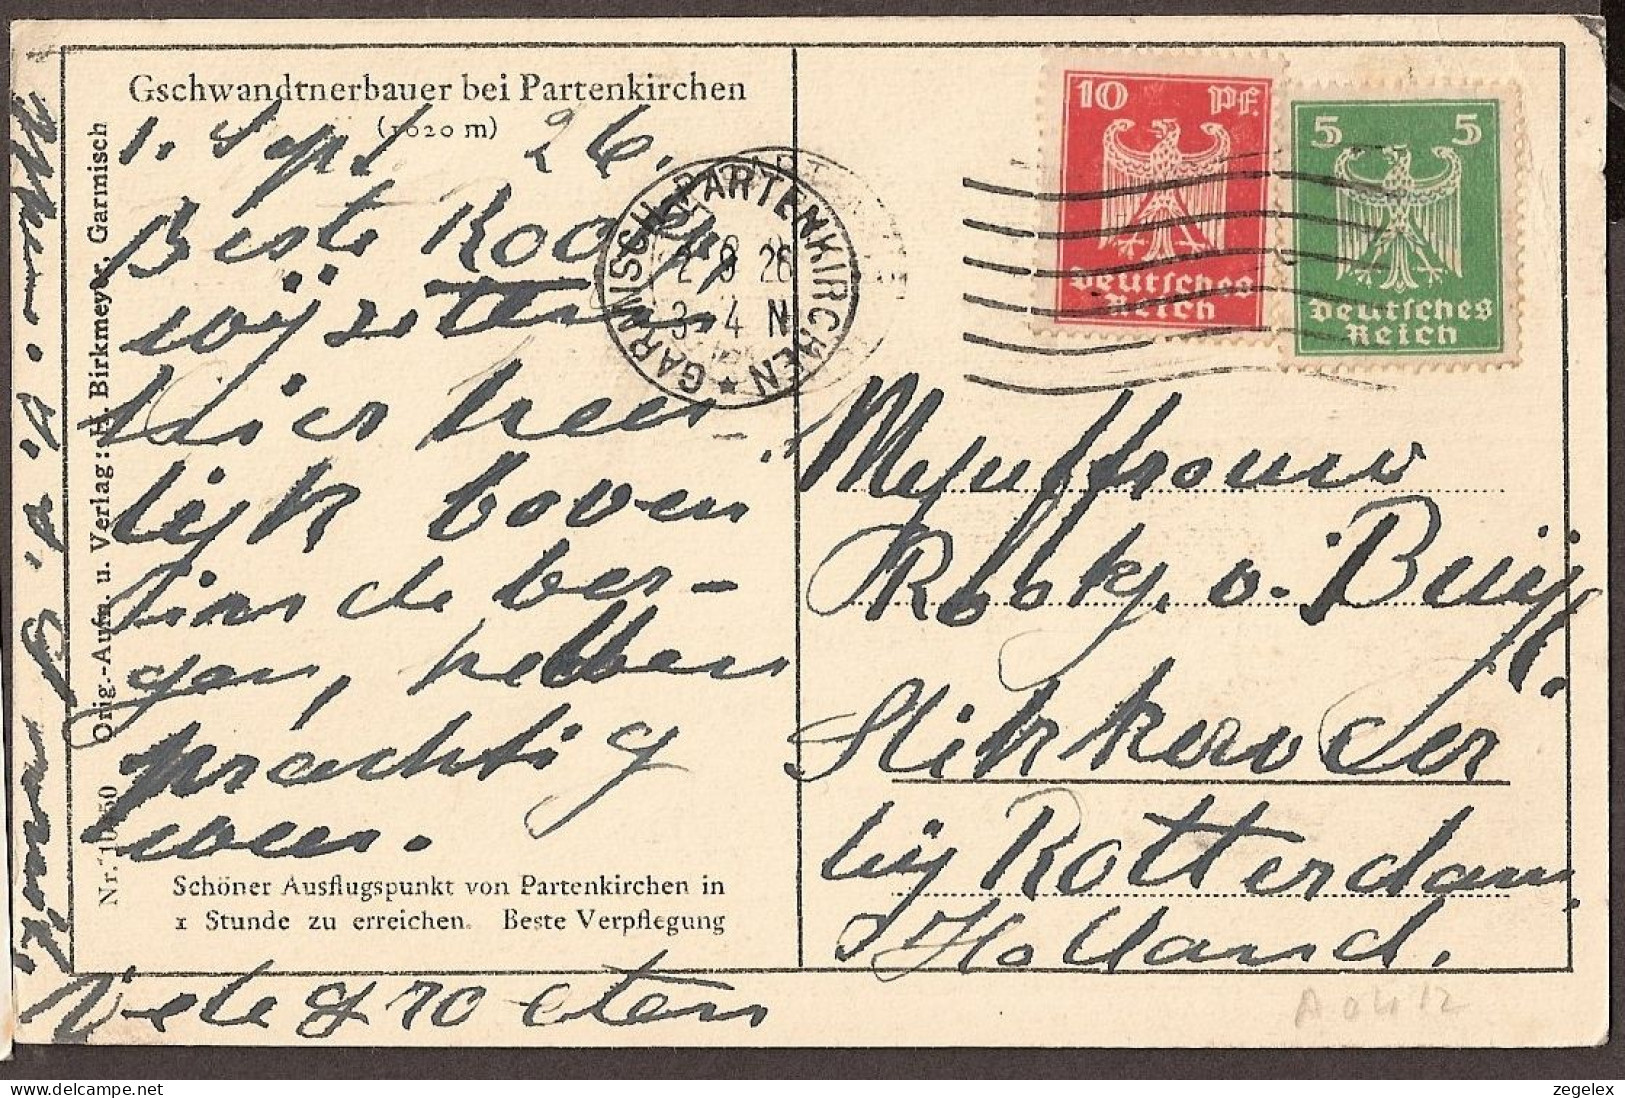 Gschwandtnerbauer bei Partenkirchen
(1020 m)
1. Sept 26.
Beste
wij zitten
hier heer
lijk boven
in de ber-
gen, hebben
prachtig
weer.
Schöner Ausflugspunkt von Partenkirchen in
1 Stunde zu erreichen. Beste Verpflegung
Vele groeten
Nr. 10450 Orig.-Aufn. u. Verlag: H. Birkmeyer, Garmisch
GARMISCH-PARTENKIRCHEN
2 9 26
3-4 N
10 PF.
Deutsches
Reich
5 5
Deutsches
Reich
Mejuffrouw
v.
Slikkerveer
bij Rotterdam
Holland.
A 0412
zegelex